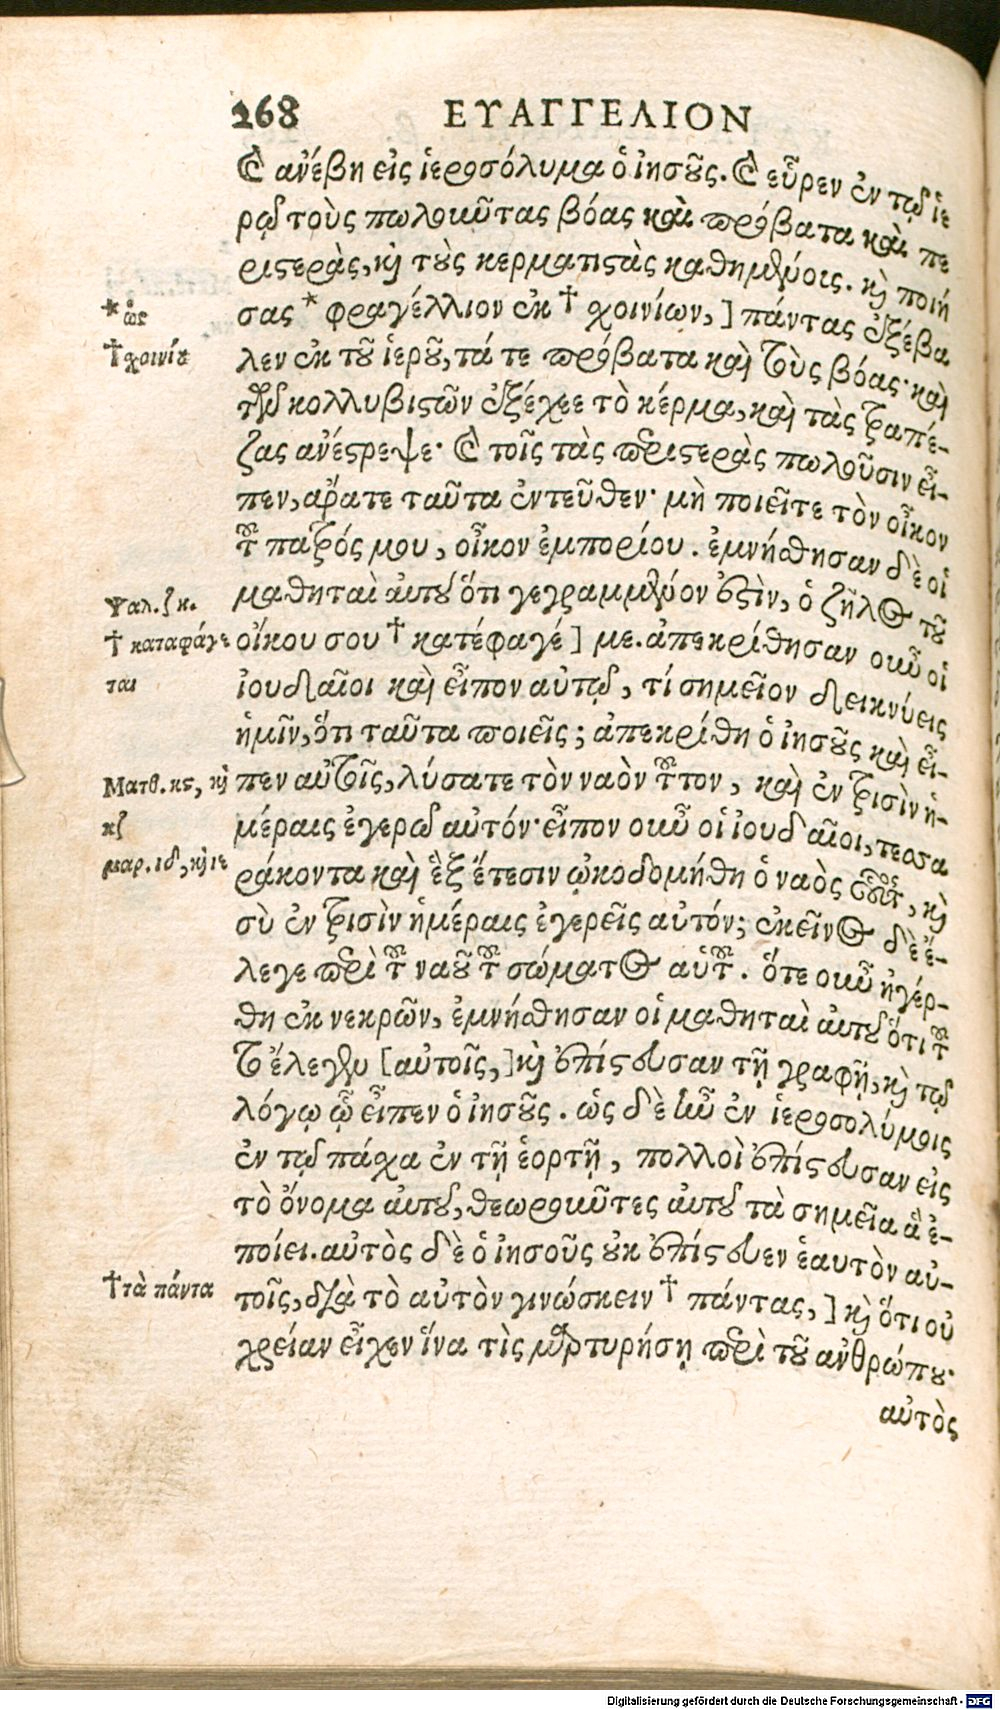 268 ΕΥΑΓΓΕΛΙΟΝ
καὶ ἀνέβη εἰς ἱεροσόλυμα ὁ ἰησοῦς. καὶ εὗρεν ἐν τῷ ἱε
ρῷ τοὺς πωλοῦντας βόας καὶ πρόβατα καὶ πε
ριστερὰς, καὶ τοὺς κερματιστὰς καθημένοις. καὶ ποιή
* ὡς
σας * φραγέλλιον ἐκ † χοινίων, ] πάντας ἐξέβα
† χοινίου
λεν ἐκ τοῦ ἱεροῦ, τά τε πρόβατα καὶ τοὺς βόας· καὶ
τῶν κολλυβιστῶν ἐξέχεε τὸ κέρμα, καὶ τὰς τραπέ-
ζας ἀνέστρεψε· καὶ τοῖς τὰς περιστερὰς πωλοῦσιν εἶ-
πεν, ἄρατε ταῦτα ἐντεῦθεν· μὴ ποιεῖτε τὸν οἶκον
τοῦ πατρός μου, οἶκον ἐμπορίου. ἐμνήσθησαν δὲ οἱ
Ψαλ. ζκ.
μαθηταὶ αὐτοῦ ὅτι γεγραμμένον ἐστὶν, ὁ ζῆλος τοῦ
† καταφάγε
οἴκου σου † κατέφαγέ ] με. ἀπεκρίθησαν οὖν οἱ
ται
ἰουδαῖοι καὶ εἶπον αὐτῷ, τί σημεῖον δεικνύεις
ἡμῖν, ὅτι ταῦτα ποιεῖς; ἀπεκρίθη ὁ ἰησοῦς καὶ εἶ-
Ματθ. κϛ, καὶ
πεν αὐτοῖς, λύσατε τὸν ναὸν τοῦτον, καὶ ἐν τρισὶν ἡ-
κζ
μέραις ἐγερῶ αὐτόν· εἶπον οὖν οἱ ἰουδαῖοι, τεσσα
μαρ. ιδ, καὶ ιε
ράκοντα καὶ ἓξ ἔτεσιν ᾠκοδομήθη ὁ ναὸς οὗτος, καὶ
σὺ ἐν τρισὶν ἡμέραις ἐγερεῖς αὐτόν; ἐκεῖνος δὲ ἔ-
λεγε περὶ τοῦ ναοῦ τοῦ σώματος αὑτοῦ. ὅτε οὖν ἠγέρ-
θη ἐκ νεκρῶν, ἐμνήσθησαν οἱ μαθηταὶ αὐτοῦ ὅτι τοῦ
το ἔλεγεν [αὐτοῖς,] καὶ ἐπίστευσαν τῇ γραφῇ, καὶ τῷ
λόγῳ ᾧ εἶπεν ὁ ἰησοῦς. ὡς δὲ ἦν ἐν ἱεροσολύμοις
ἐν τῷ πάσχα ἐν τῇ ἑορτῇ, πολλοὶ ἐπίστευσαν εἰς
τὸ ὄνομα αὐτοῦ, θεωροῦντες αὐτοῦ τὰ σημεῖα ἃ ἐ-
ποίει. αὐτὸς δὲ ὁ ἰησοῦς οὐκ ἐπίστευεν ἑαυτὸν αὐ-
† τὰ πάντα
τοῖς, διὰ τὸ αὐτὸν γινώσκειν † πάντας, ] καὶ ὅτι οὐ
χρείαν εἶχεν ἵνα τὶς μαρτυρήσῃ περὶ τοῦ ἀνθρώπου·
αὐτὸς
Digitalisierung gefördert durch die Deutsche Forschungsgemeinschaft - DFG